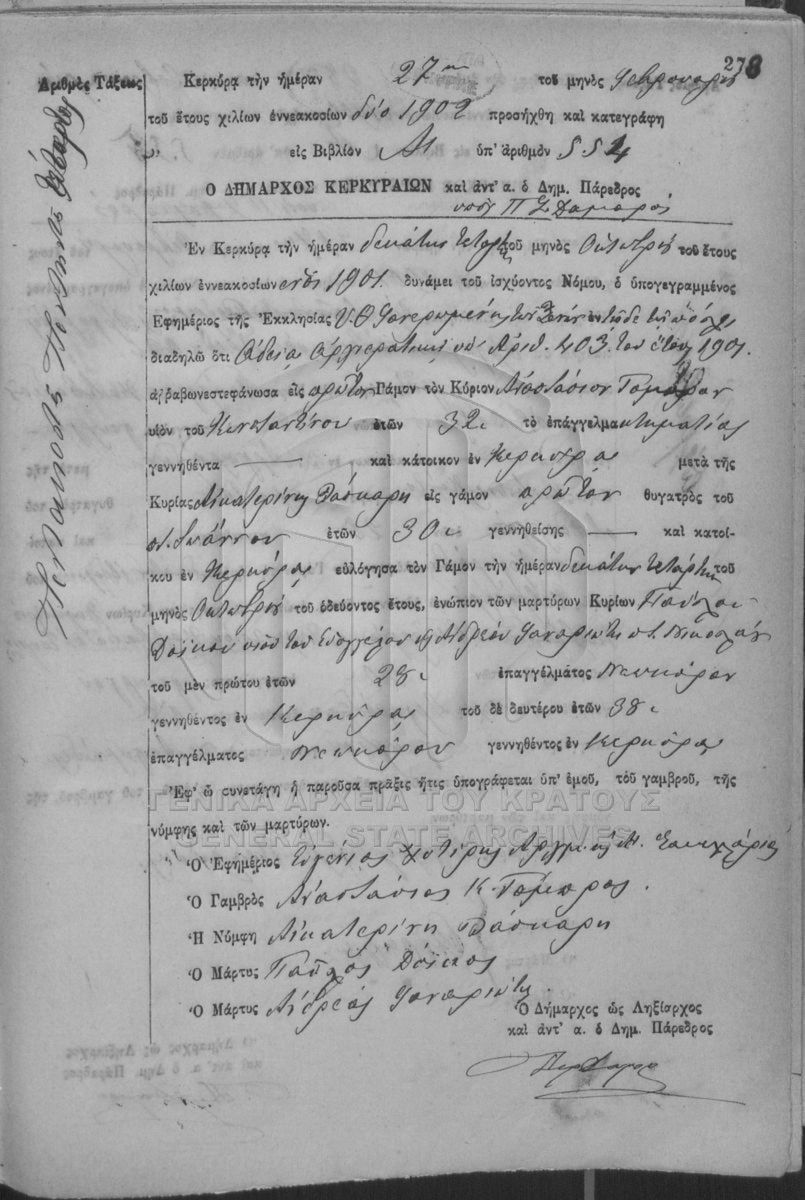 278
Ἀριθμὸς Τάξεως
Πεντακόσια Πεντήκοντα Τέσσαρα
Κερκύρᾳ τὴν ἡμέραν 27ην τοῦ μηνὸς Φεβρουαρίου
τοῦ ἔτους χιλίων ἐννεακοσίων δύο 1902 προσήχθη καὶ κατεγράφη
εἰς Βιβλίον ὑπ' ἀριθμὸν 554
Ο ΔΗΜΑΡΧΟΣ ΚΕΡΚΥΡΑΙΩΝ καὶ ἀντ' α. ὁ Δημ. Πάρεδρος
Ἐν Κερκύρᾳ τὴν ἡμέραν δεκάτην τετάρτην τοῦ μηνὸς Ὀκτωβρίου τοῦ ἔτους
χιλίων ἐννεακοσίων ἑνὸς 1901 δυνάμει τοῦ ἰσχύοντος Νόμου, ὁ ὑπογεγραμμένος
Ἐφημέριος τῆς Ἐκκλησίας Υ. Θ. Φανερωμένης τῶν Ξένων ἐν τῇδε τῇ πόλει
διαδηλῶ ὅτι Ἀδείᾳ Ἀρχιερατικῇ ὑπ' Ἀριθ. 403 τοῦ ἔτους 1901
ἀῤῥαβωνεστεφάνωσα εἰς πρῶτον Γάμον τὸν Κύριον Ἀναστάσιον
υἱὸν τοῦ Κωνσταντίνου ἐτῶν 32 τὸ ἐπάγγελμα κτηματίας
γεννηθέντα — καὶ κάτοικον ἐν Κερκύρᾳ μετὰ τῆς
Κυρίας Αἰκατερίνης Λάσκαρη εἰς γάμον πρῶτον θυγατρὸς τοῦ
Ἰωάννου ἐτῶν 30 γεννηθείσης — καὶ κατοί-
κου ἐν Κερκύρᾳ εὐλόγησα τὸν Γάμον τὴν ἡμέραν δεκάτην τετάρτην τοῦ
μηνὸς Ὀκτωβρίου τοῦ ὁδεύοντος ἔτους, ἐνώπιον τῶν μαρτύρων Κυρίων Παύλου
Δοΐκου υἱοῦ τοῦ Εὐαγγέλου Ἀνδρέου Φαναριώτη Νικολάου
τοῦ μὲν πρώτου ἐτῶν 28 ἐπαγγέλματος
γεννηθέντος ἐν Κερκύρᾳ τοῦ δὲ δευτέρου ἐτῶν 38
ἐπαγγέλματος γεννηθέντος ἐν Κερκύρᾳ
Ἐφ' ᾧ συνετάγη ἡ παροῦσα πρᾶξις ἥτις ὑπογράφεται ὑπ' ἐμοῦ, τοῦ γαμβροῦ, τῆς
νύμφης καὶ τῶν μαρτύρων.
ΓΕΝΙΚΑ ΑΡΧΕΙΑ ΤΟΥ ΚΡΑΤΟΥΣ
GENERAL STATE ARCHIVES
Ὁ Ἐφημέριος Εὐγένιος
Ὁ Γαμβρὸς Ἀναστάσιος Κ.
Ἡ Νύμφη Αἰκατερίνη Λάσκαρη
Ὁ Μάρτυς Παῦλος Δόϊκος
Ὁ Μάρτυς Ἀνδρέας Φαναριώτης
Ὁ Δήμαρχος ὡς Ληξίαρχος
καὶ ἀντ' α. ὁ Δημ. Πάρεδρος